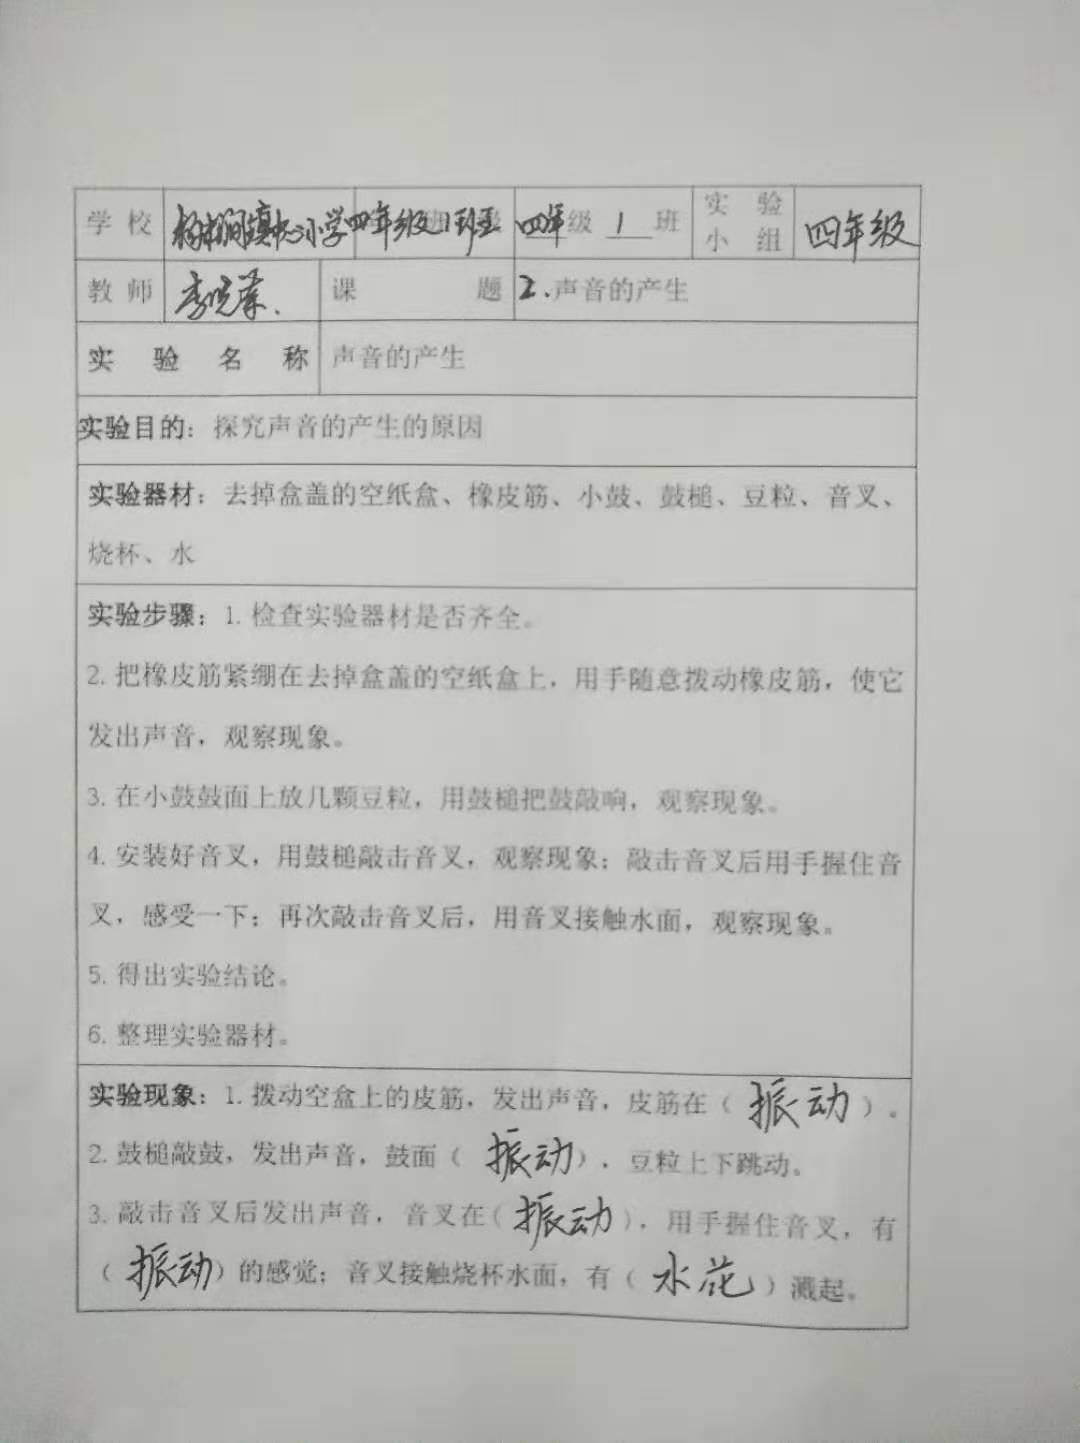 学校 小学四年级1班 四年级 1 班 实验小组 四年级
教师 课题 2.声音的产生
实验名称 声音的产生
实验目的：探究声音的产生的原因
实验器材：去掉盒盖的空纸盒、橡皮筋、小鼓、鼓槌、豆粒、音叉、
烧杯、水
实验步骤：1. 检查实验器材是否齐全。
2. 把橡皮筋紧绷在去掉盒盖的空纸盒上，用手随意拨动橡皮筋，使它
发出声音，观察现象。
3. 在小鼓鼓面上放几颗豆粒，用鼓槌把鼓敲响，观察现象。
4. 安装好音叉，用鼓槌敲击音叉，观察现象；敲击音叉后用手握住音
叉，感受一下；再次敲击音叉后，用音叉接触水面，观察现象。
5. 得出实验结论。
6. 整理实验器材。
实验现象：1. 拨动空盒上的皮筋，发出声音，皮筋在（振动）。
2. 鼓槌敲鼓，发出声音，鼓面（振动），豆粒上下跳动。
3. 敲击音叉后发出声音，音叉在（振动），用手握住音叉，有
（振动）的感觉；音叉接触烧杯水面，有（水花）溅起。